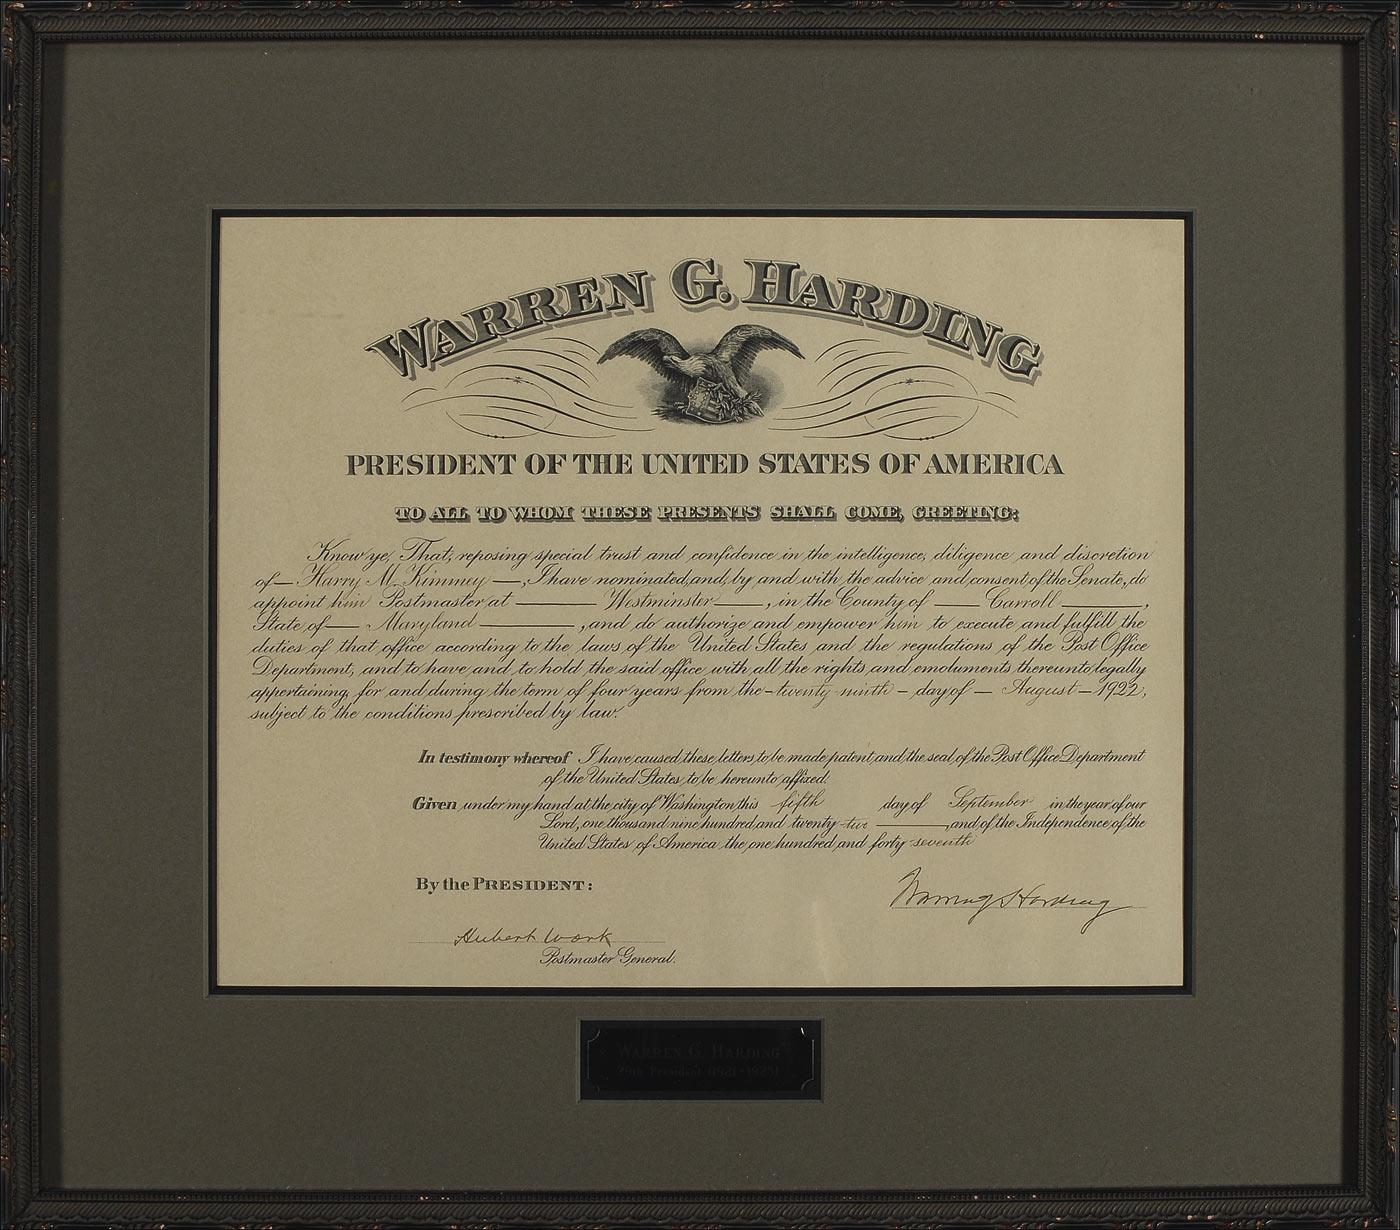 WARREN G. HARDING
PRESIDENT OF THE UNITED STATES OF AMERICA
TO ALL TO WHOM THESE PRESENTS SHALL COME, GREETING:
Know ye, That, reposing special trust and confidence in the intelligence, diligence and discretion
of — Harry M. Kimmey —, I have nominated, and, by and with the advice and consent of the Senate, do
appoint him Postmaster at — Westminster —, in the County of — Carroll —,
State of — Maryland —, and do authorize and empower him to execute and fulfill the
duties of that office according to the laws of the United States and the regulations of the Post Office
Department, and to have and to hold the said office with all the rights and emoluments thereunto legally
appertaining, for and during the term of four years from the - twenty-ninth - day of — August — 1922,
subject to the conditions prescribed by law.
In testimony whereof I have caused these letters to be made patent and the seal of the Post Office Department
of the United States to be hereunto affixed.
Given under my hand at the city of Washington this fifth day of September in the year of our
Lord, one thousand nine hundred and twenty-two —, and of the Independence of the
United States of America the one hundred and forty-seventh
By the PRESIDENT:
Warren G Harding
Hubert Work
Postmaster General.
WARREN G. HARDING
29th President (1921-1923)